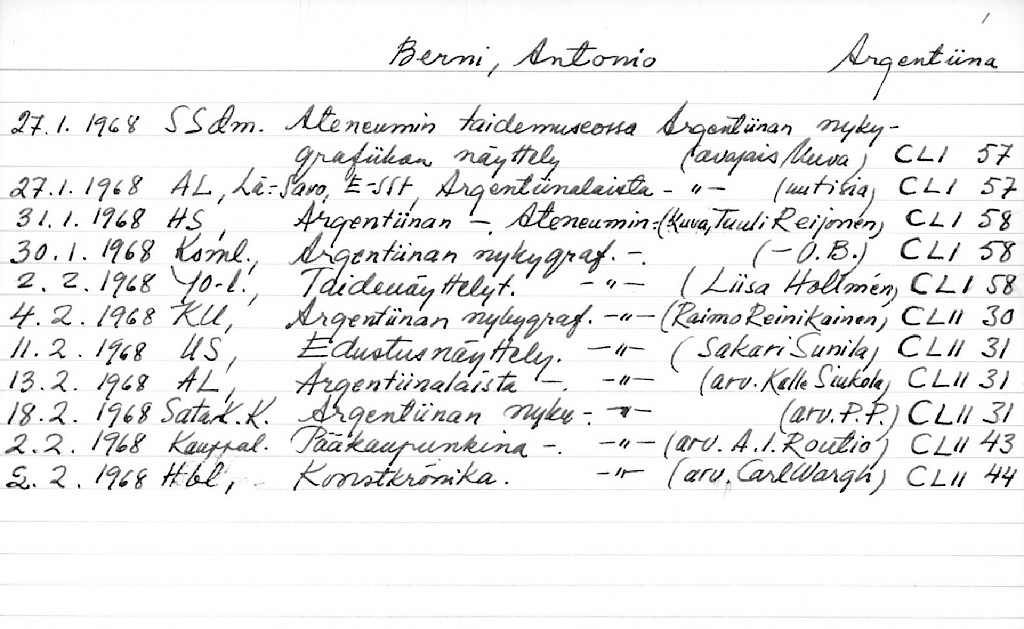 1
Berni, Antonio Argentiina
27.1.1968 SSdm. Ateneumin taidemuseossa Argentiinan nyky-
grafiikan näyttely (avajais kuva) CLI 57
27.1.1968 AL, Lä:-Savo, E-SSt, Argentiinalaista - -"- (uutisia) CLI 57
31.1.1968 HS, Argentiinan -. Ateneumin: (kuva, Tuuli Reijonen) CLI 58
30.1.1968 Ksml., Argentiinan nykygraf. -. (-O.B.) CLI 58
2.2.1968 Yo-l., Taidenäyttelyt. -"- (Liisa Holtmén) CLI 58
4.2.1968 KU, Argentiinan nykygraf. -"- (Raimo Reinikainen) CLII 30
11.2.1968 US, Edustusnäyttely. -"- (Sakari Sunila) CLII 31
13.2.1968 AL, Argentiinalaista -. -"- (arv. Kalle Siukola) CLII 31
18.2.1968 Satak.K. Argentiinan nyky -. -"- (arv. P.P.) CLII 31
2.2.1968 Kauppal. Pääkaupunkina -. -"- (arv. A.I. Routio) CLII 43
2.2.1968 Hbl, Konstkrönika. -"- (arv. Carl Wargh) CLII 44